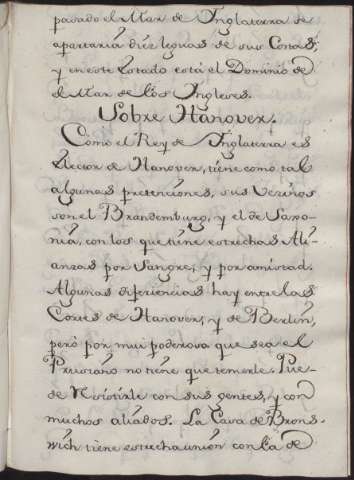 pasado el Mar de Inglaterra se
apartaría diéz leguas de sus Costas;
y en este Estado está el Dominio de
el Mar de lôs Ingleses.
Sobre Hanover.
Como el Rey de Inglaterra es
Elector de Hanover, tiene como tal
algunas pretenciones, sus Vezinos
son el Brandemburgo, y el de Saxo-
nia, con los que tiéne estrechas Ali-
anzas por Sangre, y por amistad.
Algunas diferiencias hay entre las
Cortes de Hanover, y de Berlin,
però por mui poderosa que sea el
Prusiano no tiéne que temerle. Pue-
de Resistirle con sus gentes, y con
muchos aliados. La Casa de Bruns
wich tiéne estrecha unión con la de